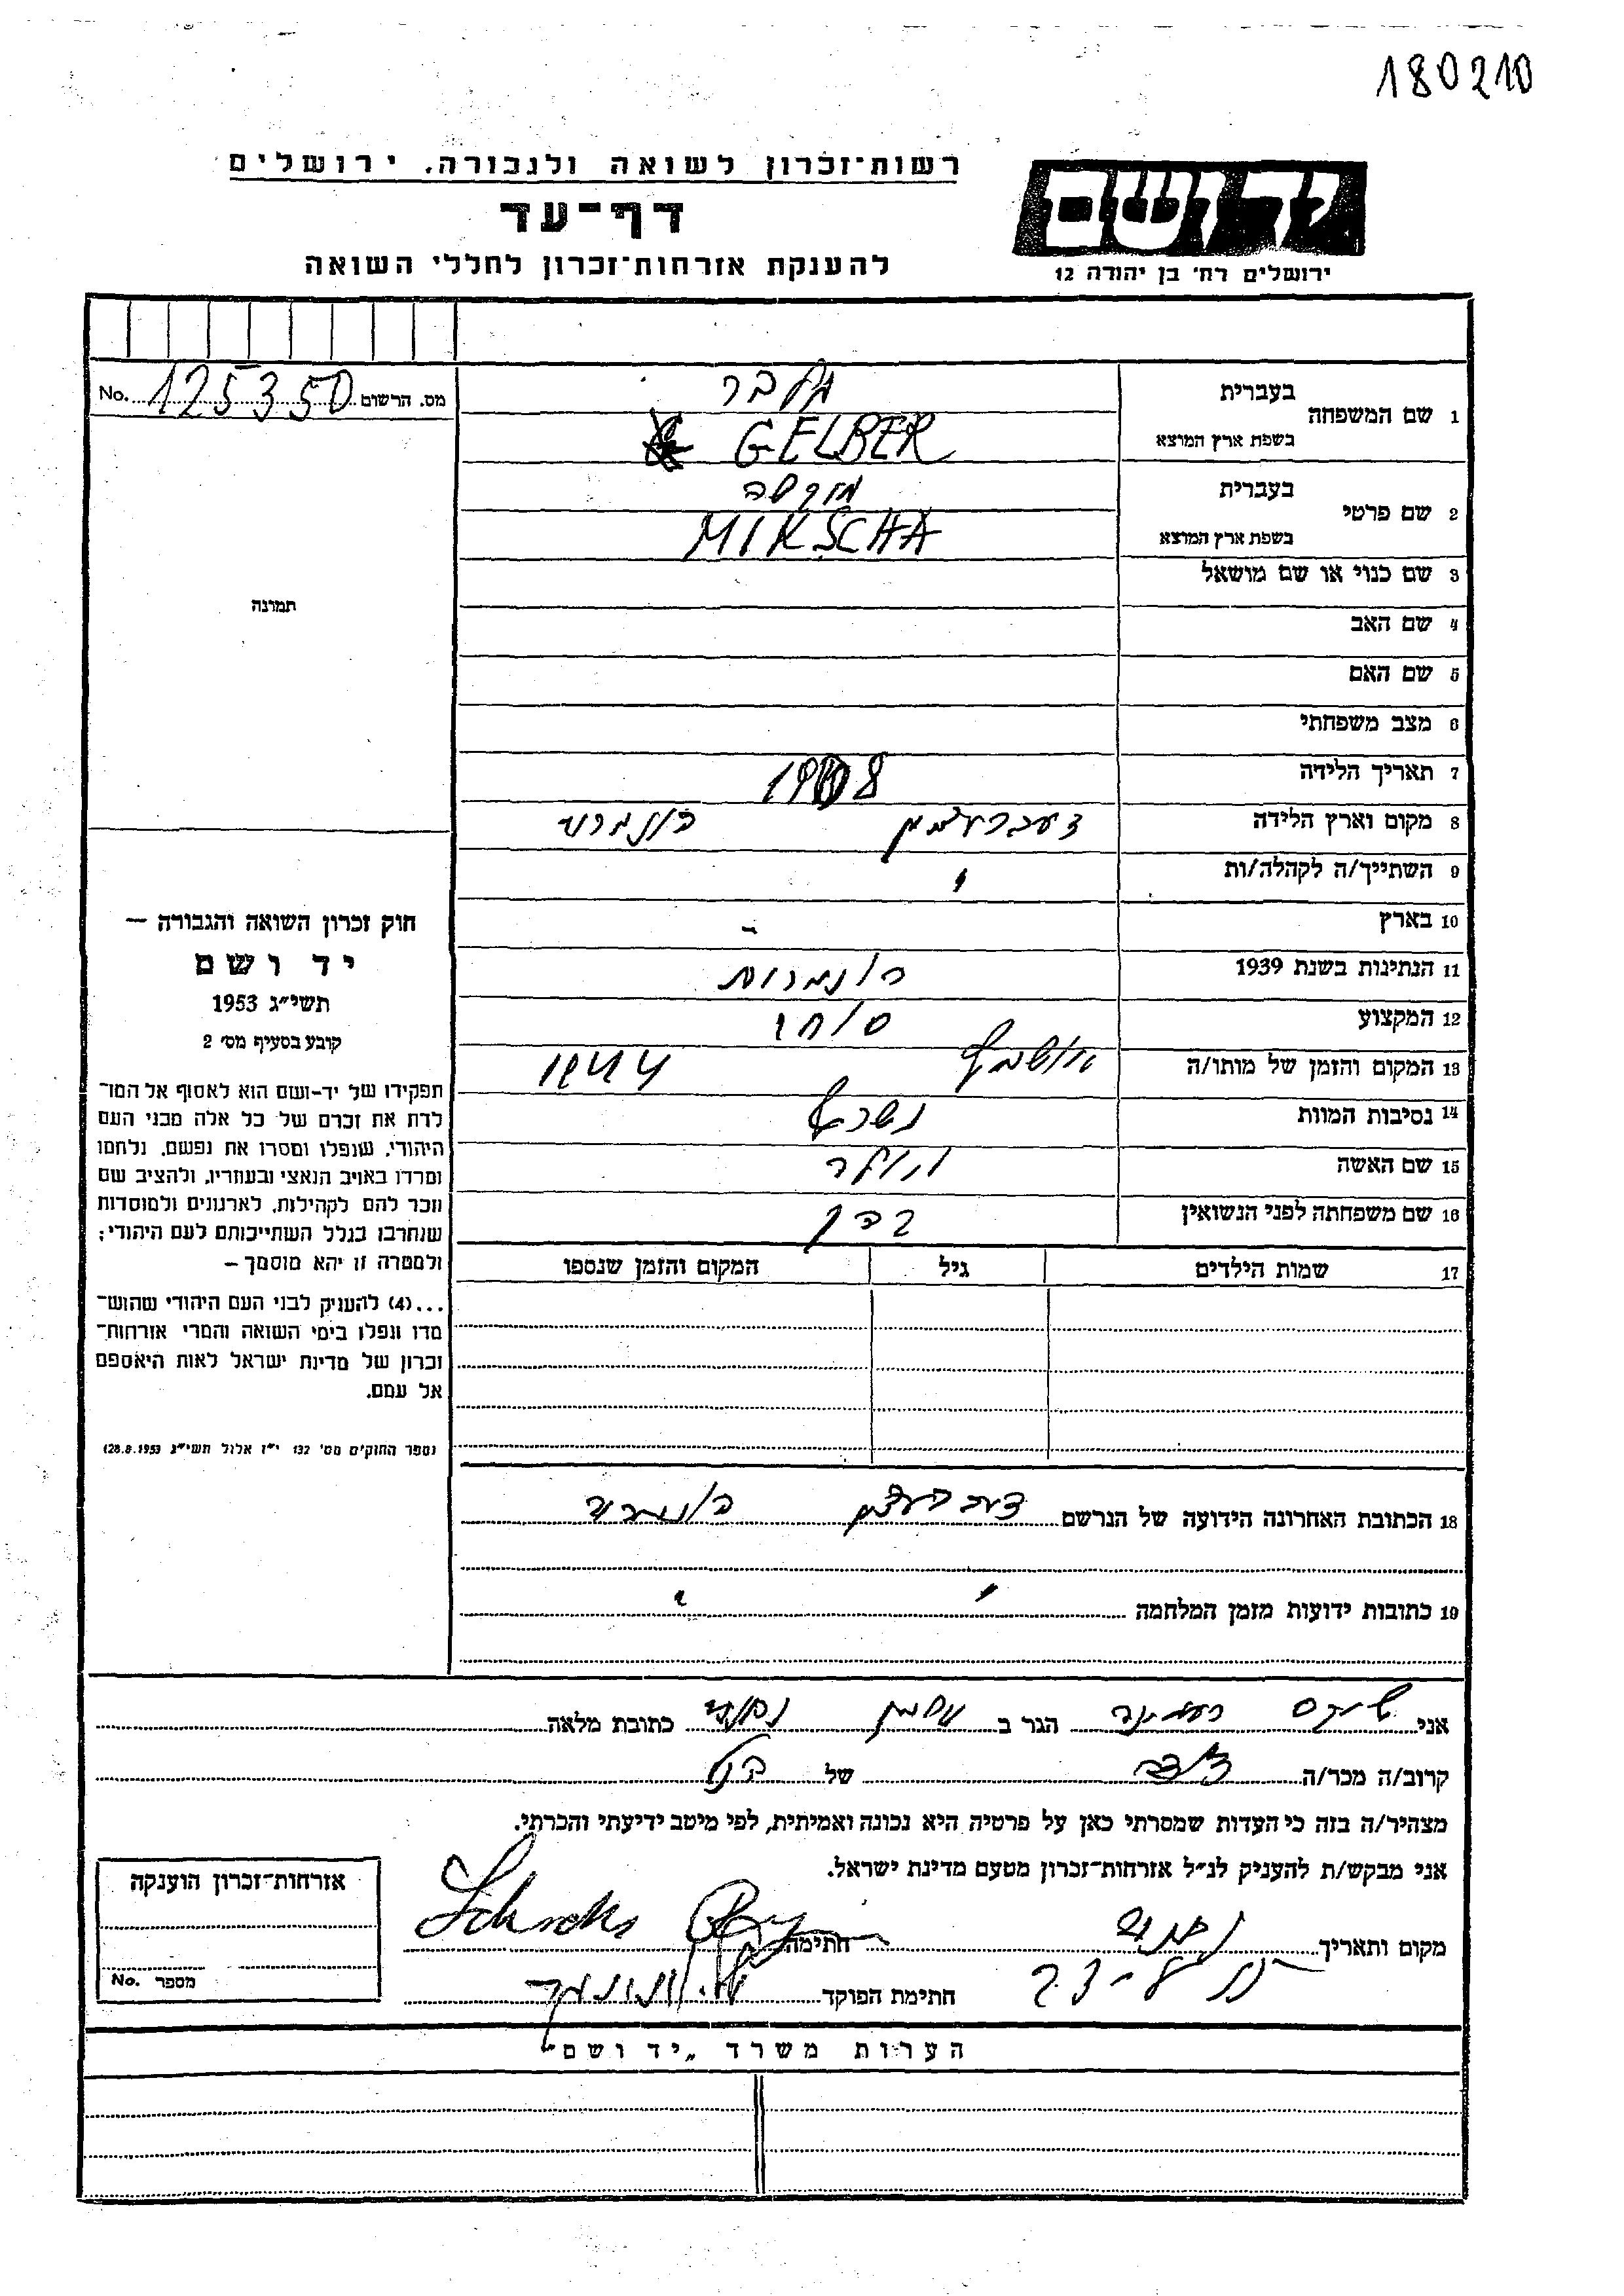 180210
רשות־זכרון לשואה ולגבורה, ירושלים
דף־עד
להענקת אזרחות־זכרון לחללי השואה
יד ושם
ירושלים רח' בן יהודה 12
מס. הרשום 125350 No.
1 שם המשפחה
בעברית גלבר
בשפת ארץ המוצא GELBER
2 שם פרטי
בעברית מיקשה
בשפת ארץ המוצא MIKSCHA
3 שם כנוי או שם מושאל
4 שם האב
5 שם האם
6 מצב משפחתי
7 תאריך הלידה 1908
8 מקום וארץ הלידה דעברעצין הונגריה
9 השתייך/ה לקהלה/ות
10 בארץ -
11 הנתינות בשנת 1939 הונגרית
12 המקצוע סוחר
13 המקום והזמן של מותו/ה אושביץ 1944
14 נסיבות המוות נשרף
15 שם האשה
16 שם משפחתה לפני הנשואין
17 שמות הילדים גיל המקום והזמן שנספו
18 הכתובת האחרונה הידועה של הנרשם דעברעצין הונגריה
19 כתובות ידועות מזמן המלחמה
תמונה
חוק זכרון השואה והגבורה —
יד ושם
תשי״ג 1953
קובע בסעיף מס' 2
תפקידו של יד-ושם הוא לאסוף אל המו־
לדת את זכרם של כל אלה מבני העם
היהודי, שנפלו ומסרו את נפשם, נלחמו
ומרדו באויב הנאצי ובעוזריו, ולהציב שם
וזכר להם לקהילות, לארגונים ולמוסדות
שנחרבו בגלל השתייכותם לעם היהודי;
ולמטרה זו יהא מוסמך —
...(4) להעניק לבני העם היהודי שהוש־
מדו ונפלו בימי השואה והמרי אזרחות־
זכרון של מדינת ישראל לאות היאספם
אל עמם.
(ספר החוקים מס' 132 י״ז אלול תשי״ג 28.8.1953)
אני הגר ב כתובת מלאה
קרוב/ה מכר/ה של
מצהיר/ה בזה כי העדות שמסרתי כאן על פרטיה היא נכונה ואמיתית, לפי מיטב ידיעתי והכרתי.
אני מבקש/ת להעניק לנ״ל אזרחות־זכרון מטעם מדינת ישראל.
מקום ותאריך חתימה
חתימת הפוקד
אזרחות־זכרון הוענקה
מספר No.
הערות משרד „יד ושם"